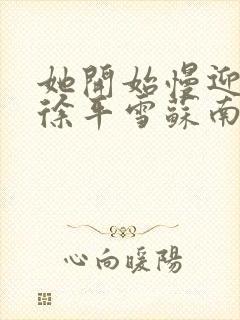 她開始慢迎
徐年雪蘇南
心向暖陽